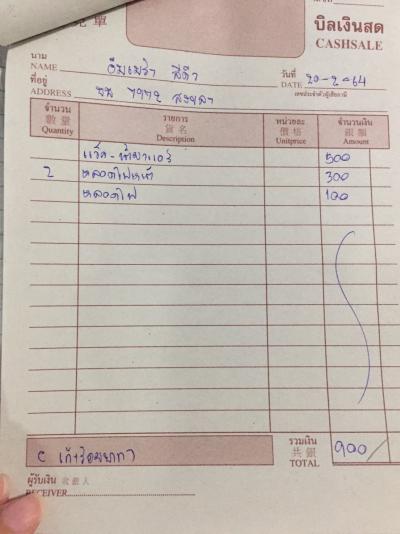 單
บิลเงินสด
CASHSALE
นาม
NAME อิมเพร่า สีดำ
วันที่
DATE 20-2-64
ที่อยู่
ADDRESS ขน 7772 สงขลา
เลขประจำตัวผู้เสียภาษี
จำนวน รายการ หน่วยละ จำนวนเงิน
數量 貨名 價格 銀額
Quantity Description Unitprice Amount
แว็ค-น้ำยาแอร์ 500
2 หลอดไฟหน้า 300
หลอดไฟ 100
รวมเงิน
共銀
TOTAL 900/
( เก้าร้อยบาท )
ผู้รับเงิน 收銀人
RECEIVER